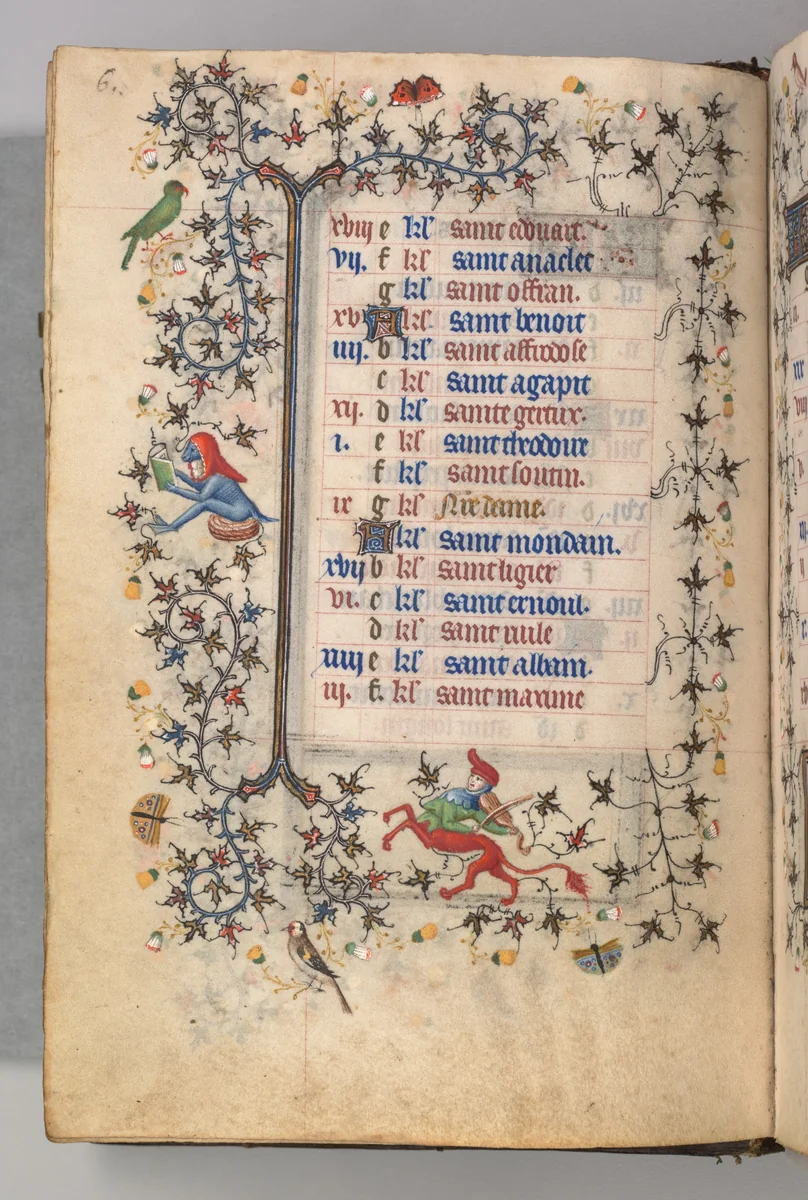 6.
xviij e kl' saint edouart.
vij. f kl' saint anaclet
g kl' saint offran.
xv A kl' saint benoit
iiij. b kl' saint affrodose
c kl' saint agapit
xij. d kl' sainte gertux.
i. e kl' saint theodour
f kl' saint soutin.
ix g kl' N're dame.
A kl' saint mondain.
xvij b kl' saint ligier
vi. c kl' saint ernoul.
d kl' saint uule
xiiij e kl' saint albain.
iij. f. kl' saint maxime